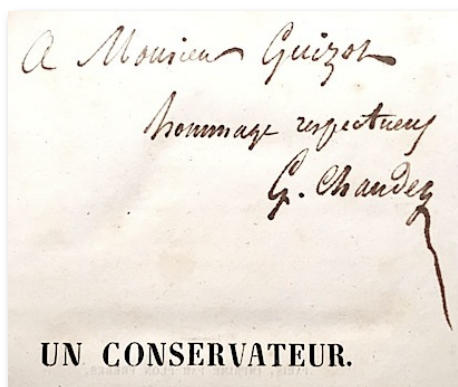 A Monsieur Guizot
hommage respectueux
G. Chaudey
UN CONSERVATEUR.